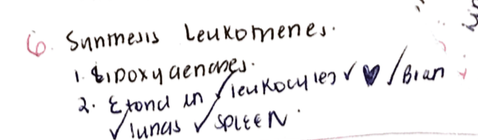 6. Sunmesis Leukomenes.
1. Lipoxygenanes.
2. Etond in / leukocytes ✓ ♥ / Brain
✓ lungs ✓ SPLEEN.